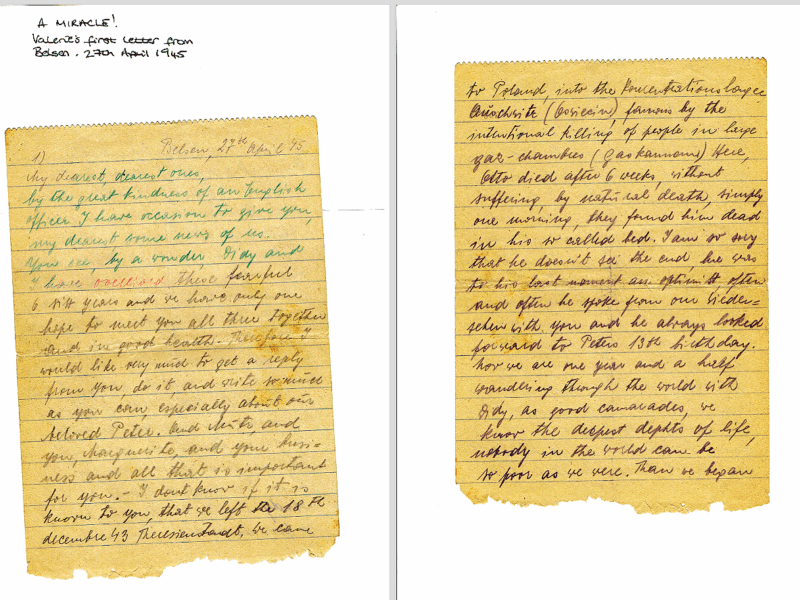 A MIRACLE!
Valerie's first letter from
Belsen. 27th April 1945
1) Belsen, 27th April 45
My dearest, dearest ones,
by the great kindness of an English
officer I have occasion to give you
my dearest some news of us.
You see, by a wonder, Didy and
I have overlived these fearful
6 years and we have only one
hope to meet you all three together
and in good health. Therefore I
would like very much to get a reply
from you, do it, and write so much
as you can, especially about our
beloved Peter. And Mutz and
you, Marguerite, and your busi-
ness and all that is important
for you.- I dont know if it is
known to you, that we left the 18th
decembre 43 Theresienstadt, we came
to Poland, into the Koncentrationslager
Auschwitz (Osviecin), famous by the
intentional killing of people in large
gaz-chambres (Gaskammern) Here,
Otto died after 6 weeks without
suffering by natural death, simply
one morning, they found him dead
in his so called bed. I am so sorry
that he doesn't see the end, he was
to his last moment an optimist, often
and often he spoke from our Wieder=
sehen with you and he always looked
forward to Peters 13th birthday.
Now we are one year and a half
wandering though the world with
Didy, as good camarades, we
know the deepest dephts of life,
nobody in the world can be
so poor as we were. Than we began